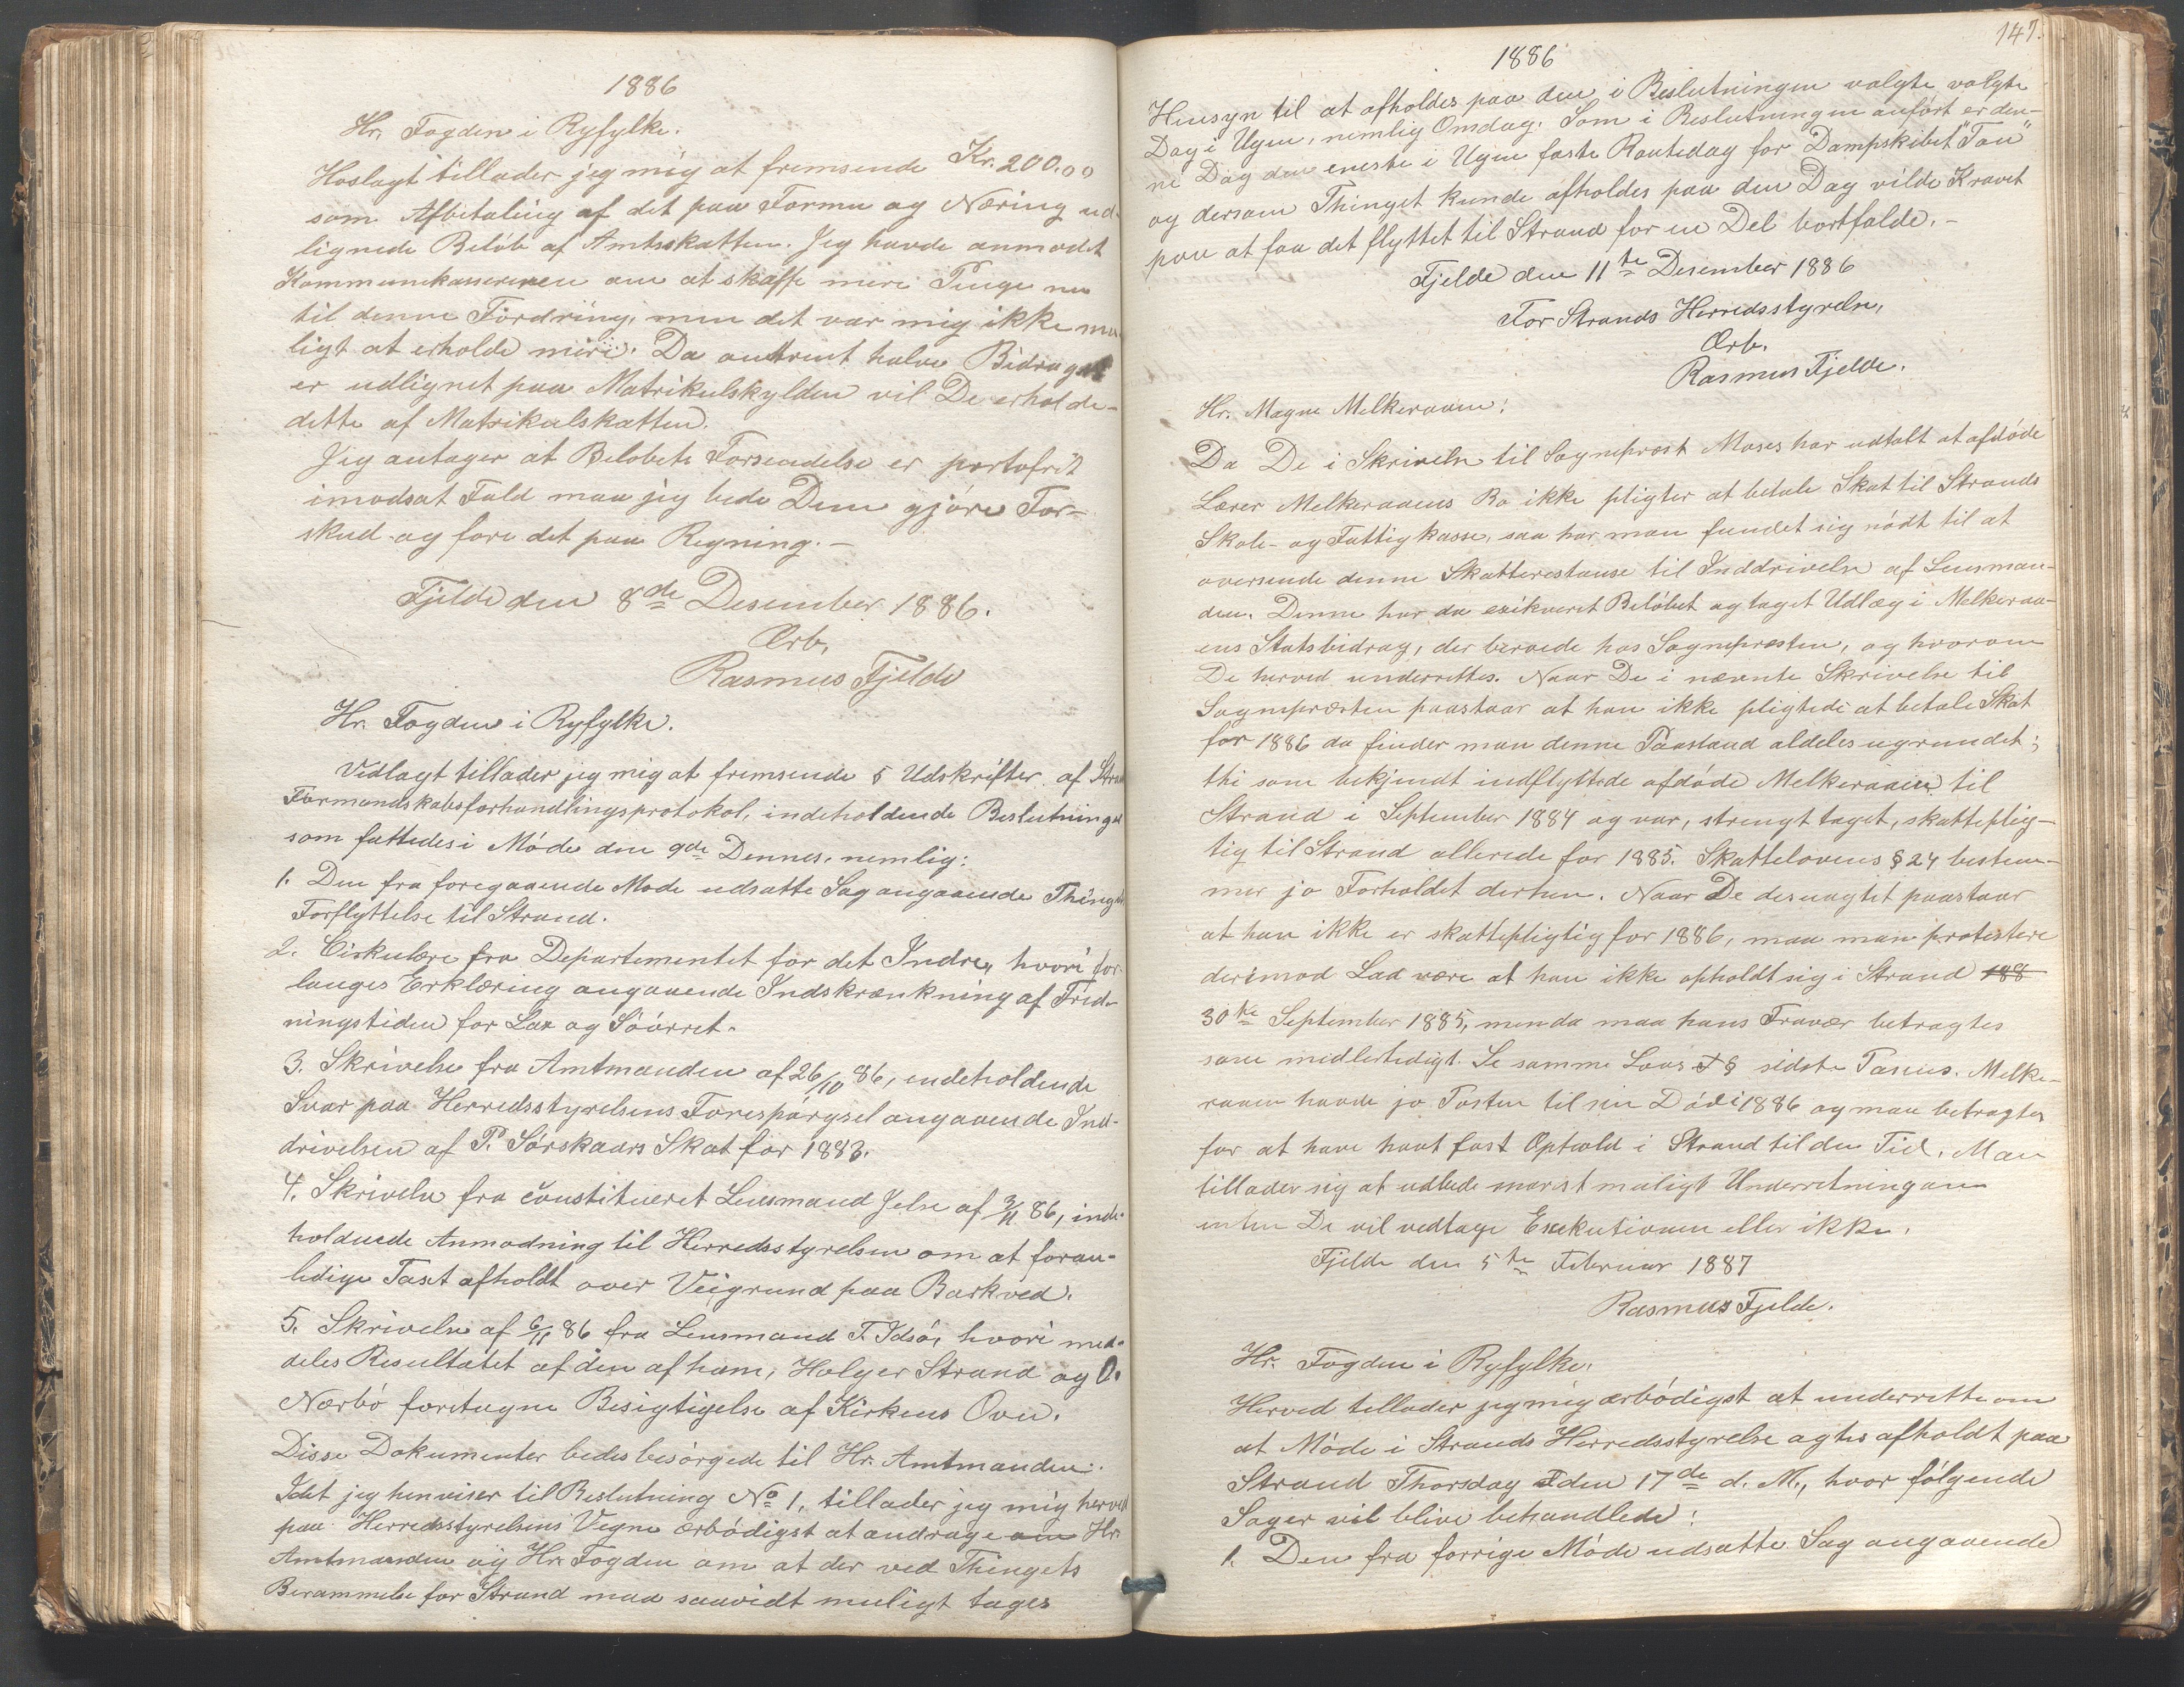 1886
Hr. Fogden i Ryfylke.
Hoslagt tillader jeg mig at fremsende Kr. 200.00
som Afbetaling af det paa Formu og Næring ud-
lignede Beløb af Amtsskatten. Jeg havde anmodet
Kommunekassereren om at skaffe mere Penge nu
til denne Fordring, men det var mig ikke mu-
ligt at erholde mere. Da omtrent halve Bidraget
er udlignet paa Matrikulskylden vil De erholde
dette af Matrikulskatten.
Jeg antager at Belobets Forsendelse er portofrit
imodsat Fald maa jeg bede Dem gjöre For-
skud og fore det paa Regning. —
Fjelde den 8de Desember 1886.
Ærb.
Rasmus Fjelde
Hr. Fogden i Ryfylke.
Vedlagt tillader jeg mig at fremsende 5 Udskrifter af Strands
Formandskabsforhandlingsprotokol, indeholdende Beslutninger
som fattedes i Möde den 9de Dennes, nemlig:
1. Den fra foregaaende Mode udsatte Sag angaaende Thingets
Forflyttelse til Strand.
2. Cirkulære fra Departementet for det Indre, hvori for-
langes Erklæring angaaende Indskrænkning af Fred-
ningstiden for Lax og Söörret.
3. Skrivelse fra Amtmanden af 26/10 86, indeholdende
Svar paa Herredsstyrelsens Forespörgsel angaaende Ind-
drivelsen af P. Sörskaars Skat for 1883.
4. Skrivelse fra constitueret Lensmand Jelse af 3/11 86, inde-
holdende Anmodning til Herredsstyrelsen om at foran-
ledige Taxt afholdt over Veigrund paa Barkved.
5. Skrivelse af 6/11 86 fra Lensmand T. Idsö, hvori med-
deles Resultatet af den af ham, Holger Strand og O.
Nærbö foretagne Besigtigelse af Kirkens Ovn.
Disse Dokumenter bedes besörgede til Hr. Amtmanden.
Idet jeg henviser til Beslutning No 1, tillader jeg mig herved
paa Herredsstyrelsens Vegne ærbödigst at andrage om Hr.
Amtmanden og Hr. Fogden om at der ved Thingets
Berammelse for Strand maa saavidt muligt tages
147.
1886
Hensyn til at afholdes paa den i Beslutningen valgte valgte
Dag i Ugen, nemlig Onsdag. Som i Beslutningen anfört er den-
ne Dag den eneste i Ugen faste Routedag for Dampskibet "Tau"
og dersom Thinget kunde afholdes paa den Dag vilde Kravet
paa at faa det flyttet til Strand for en Del bortfalde. —
Fjelde den 11te Desember 1886
For Strands Herredsstyrelse,
Ærb.
Rasmus Fjelde.
Hr. Magne Melkeraaen:
Da De i Skrivelse til Sogneprest Moses har udtalt at afdöde
Lærer Melkeraaens Bo ikke pligter at betale Skat til Strands
Skole- og Fattigkasse, saa har man fundet sig nödt til at
oversende denne Skatterestanse til Inddrivelse af Lensman-
den. Denne har da exikveret Belöbet og taget Udlæg i Melkeraa-
ens Statsbidrag, der beroede hos Sognepresten, og hvorom
De herved underrettes. Naar De i nævnte Skrivelse til
Sognepræsten paastaar at han ikke pligtede at betale Skat
for 1886 da finder man denne Paastand aldeles ugrundet;
thi som bekjendt indflyttede afdöde Melkeraaen til
Strand i September 1884 og var, strengt taget, skatteplig-
tig til Strand allerede for 1885. Skattelovens § 24 bestem-
mer jo Forholdet derhen. Naar De desuagtet paastaar
at han ikke er skattepligtig for 1886, maa man protestere
derimod Lad være at han ikke opholdt sig i Strand 188
30te September 1885, men da maa hans Fravær betragtes
som midlertidigt. Se samme Lovs § sidste Passus. Melke-
raaen havde jo Posten til sin Död i 1886 og maa betragtes
for at have havt fast Ophold i Strand til den Tid. Man
tillader sig at udbede snarest muligt Underretning om
enten De vil vedtage Exekutionen eller ikke.
Fjelde den 5te Februar 1887
Rasmus Fjelde.
Hr. Fogden i Ryfylke.
Herved tillader jeg mig ærbödigst at underrette om
at Möde i Strands Herredsstyrelse agtes afholdt paa
Strand Thorsdag den 17de d. M., hvor fölgende
Sager vil blive behandlede:
1. Den fra forrige Möde udsatte Sag angaaende